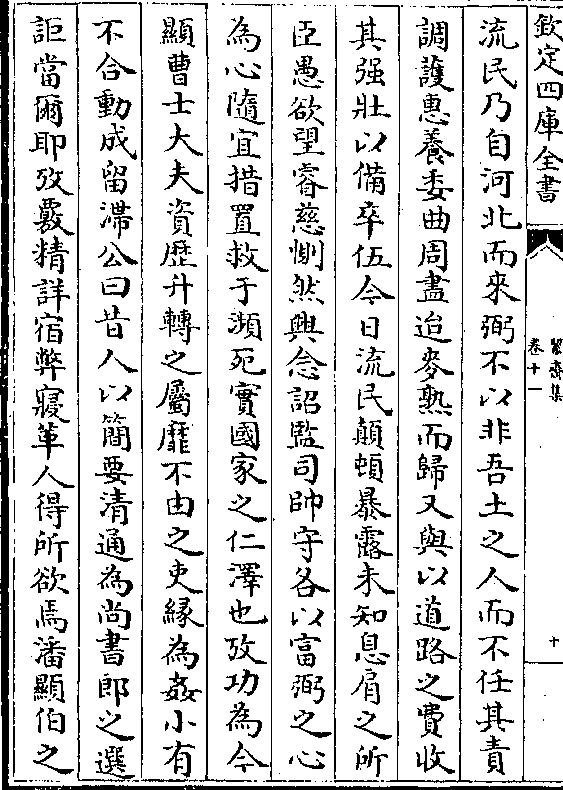 欽定四庫全書
絜齋集
卷十一
十
流民乃自河北而來弼不以非吾土之人而不任其責
調護惠養委曲周盡迨麥熟而歸又與以道路之費收
其强壯以備卒伍今日流民顛頓暴露未知息肩之所
臣愚欲望睿慈惻然興念詔監司帥守各以富弼之心
為心隨宜措置救于瀕死實國家之仁澤也攷功為今
顯曹士大夫資歴升轉之屬靡不由之吏緣為姦小有
不合動成留滯公曰昔人以簡要清通為尚書郎之選
詎當爾耶攷覈精詳宿弊寢革人得所欲焉潘顯伯之